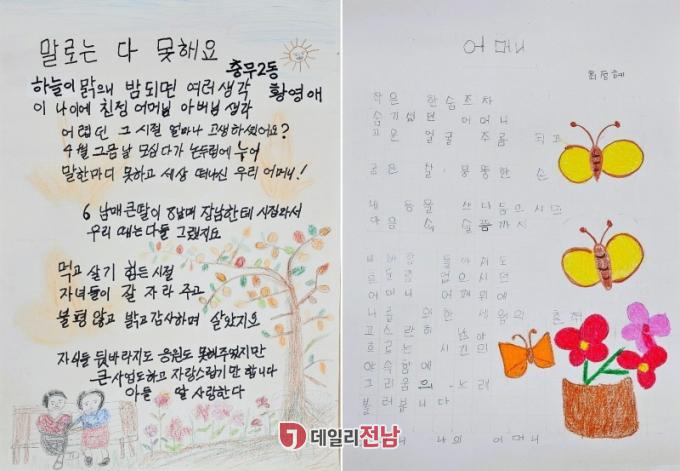 말로는 다 못해요
충무2동
황영애
하늘이 맑으니 밤되면 여러생각
이 나이에 친정 어머님 아버님 생각
어렵던 그 시절 얼마나 고생하셨어요?
4월 그믐날 모심다가 논두렁에 누어
말한마디 못하고 세상 떠나신 우리 어머니!
6남매 큰딸이 8남매 장남한테 시집와서
우리 때는 다들 그랬지요
먹고 살기 힘든 시절
자녀들이 잘 자라 주고
불평 않고 밝고 감사하며 살았지요
자식들 뒷바라지도 응원도 못해주었지만
큰 사업도하고 자랑스럽기만 합니다
아들 딸 사랑한다
어머니
작은 한숨조차
숨기셨던 어머니
고운 얼굴 주름 되고
굽은 손
쓰다듬으시던
마음 속 슬픔까지
어머니 어깨위에
고스란히 남아
흐르는 시간의
야속함에
그리움의 노래
불러봅니다
나의 어머니
데일리전남